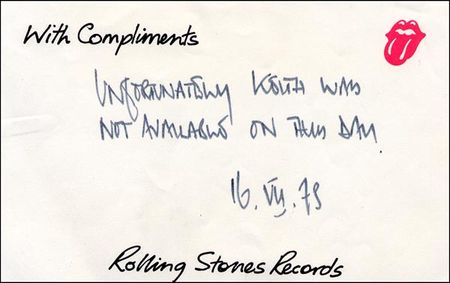 With Compliments
UNFORTUNATELY KEITH WAS
NOT AVAILABLE ON THIS DAY
16. VII. 79
Rolling Stones Records